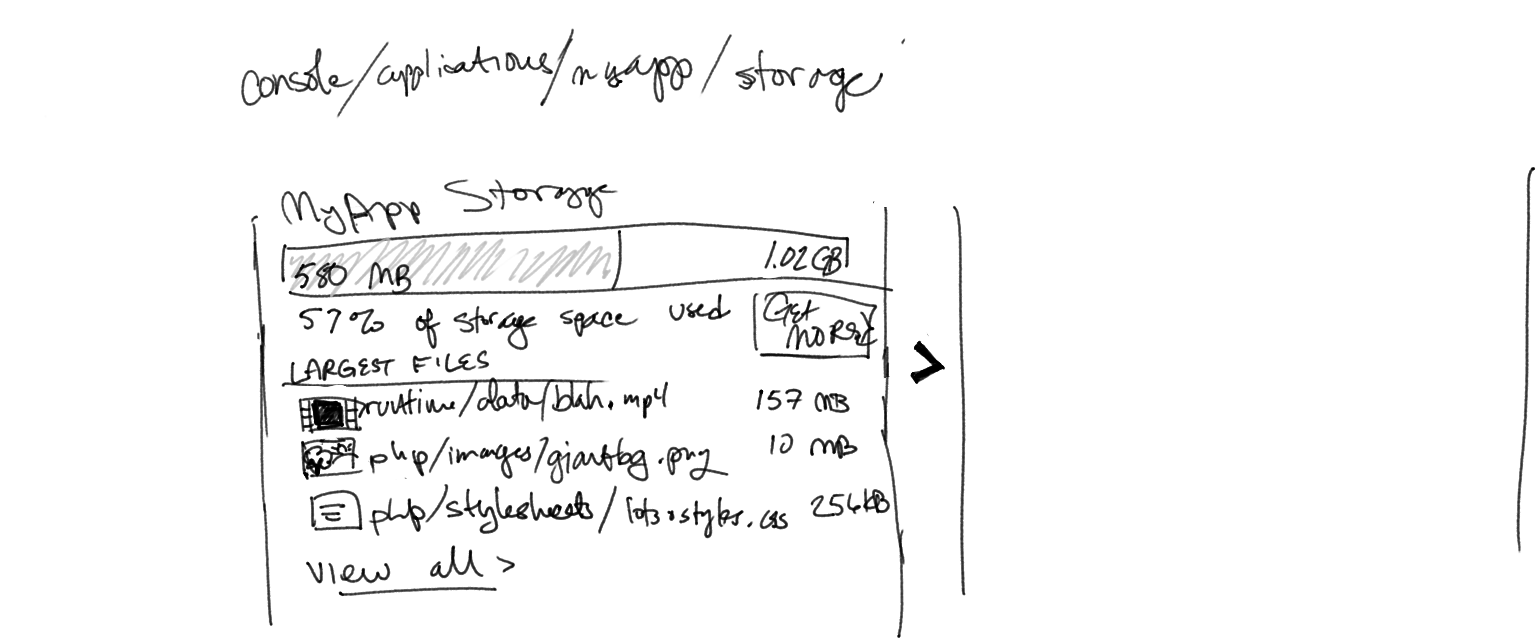 console/applications/myapp/storage
MyApp Storage
580 MB 1.02GB
57% of storage space used GET MORE
LARGEST FILES
runtime/data/blah.mp4 157 MB
php/images/giantbg.png 10 MB
php/stylesheets/lotsostyles.css 256kB
view all >
>